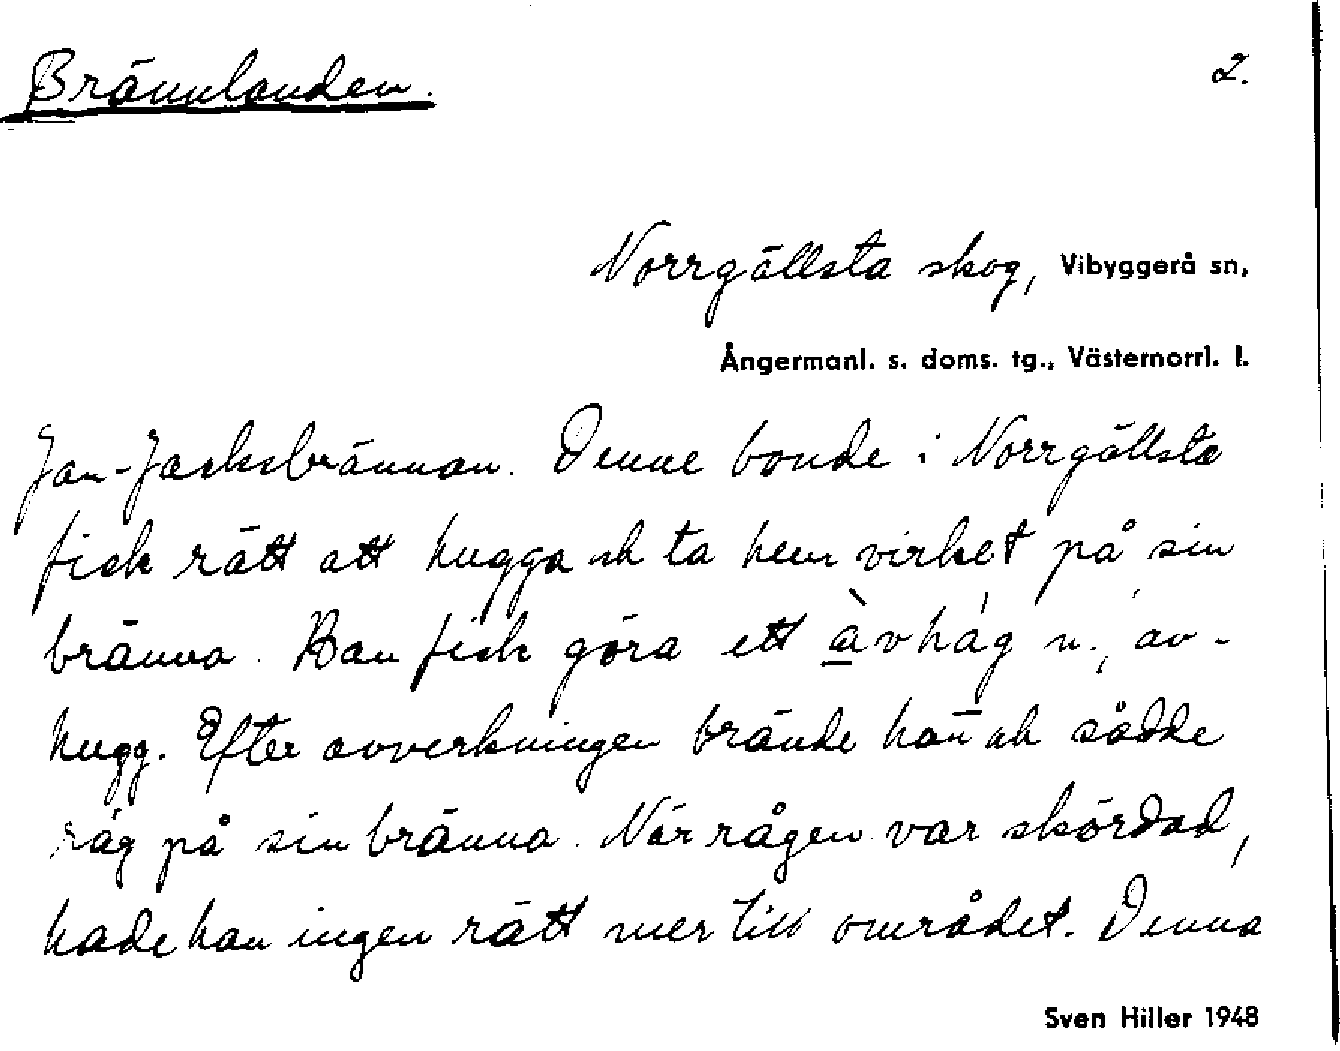 Brännlanden.
2.
Norrgällsta skog, Vibyggerå sn,
Ångermanl. s. doms. tg., Västernorrl. l.
Jan-Jacksbrännan. Denne bonde i Norrgällsta
fick rätt att hugga ok ta hem virket på sin
bränna. Han fick göra ett àvhág n., av-
hugg. Efter avverkningen brände han ok sådde
råg på sin bränna. När rågen var skördad,
hade han ingen rätt mer till området. Denna
Sven Hiller 1948